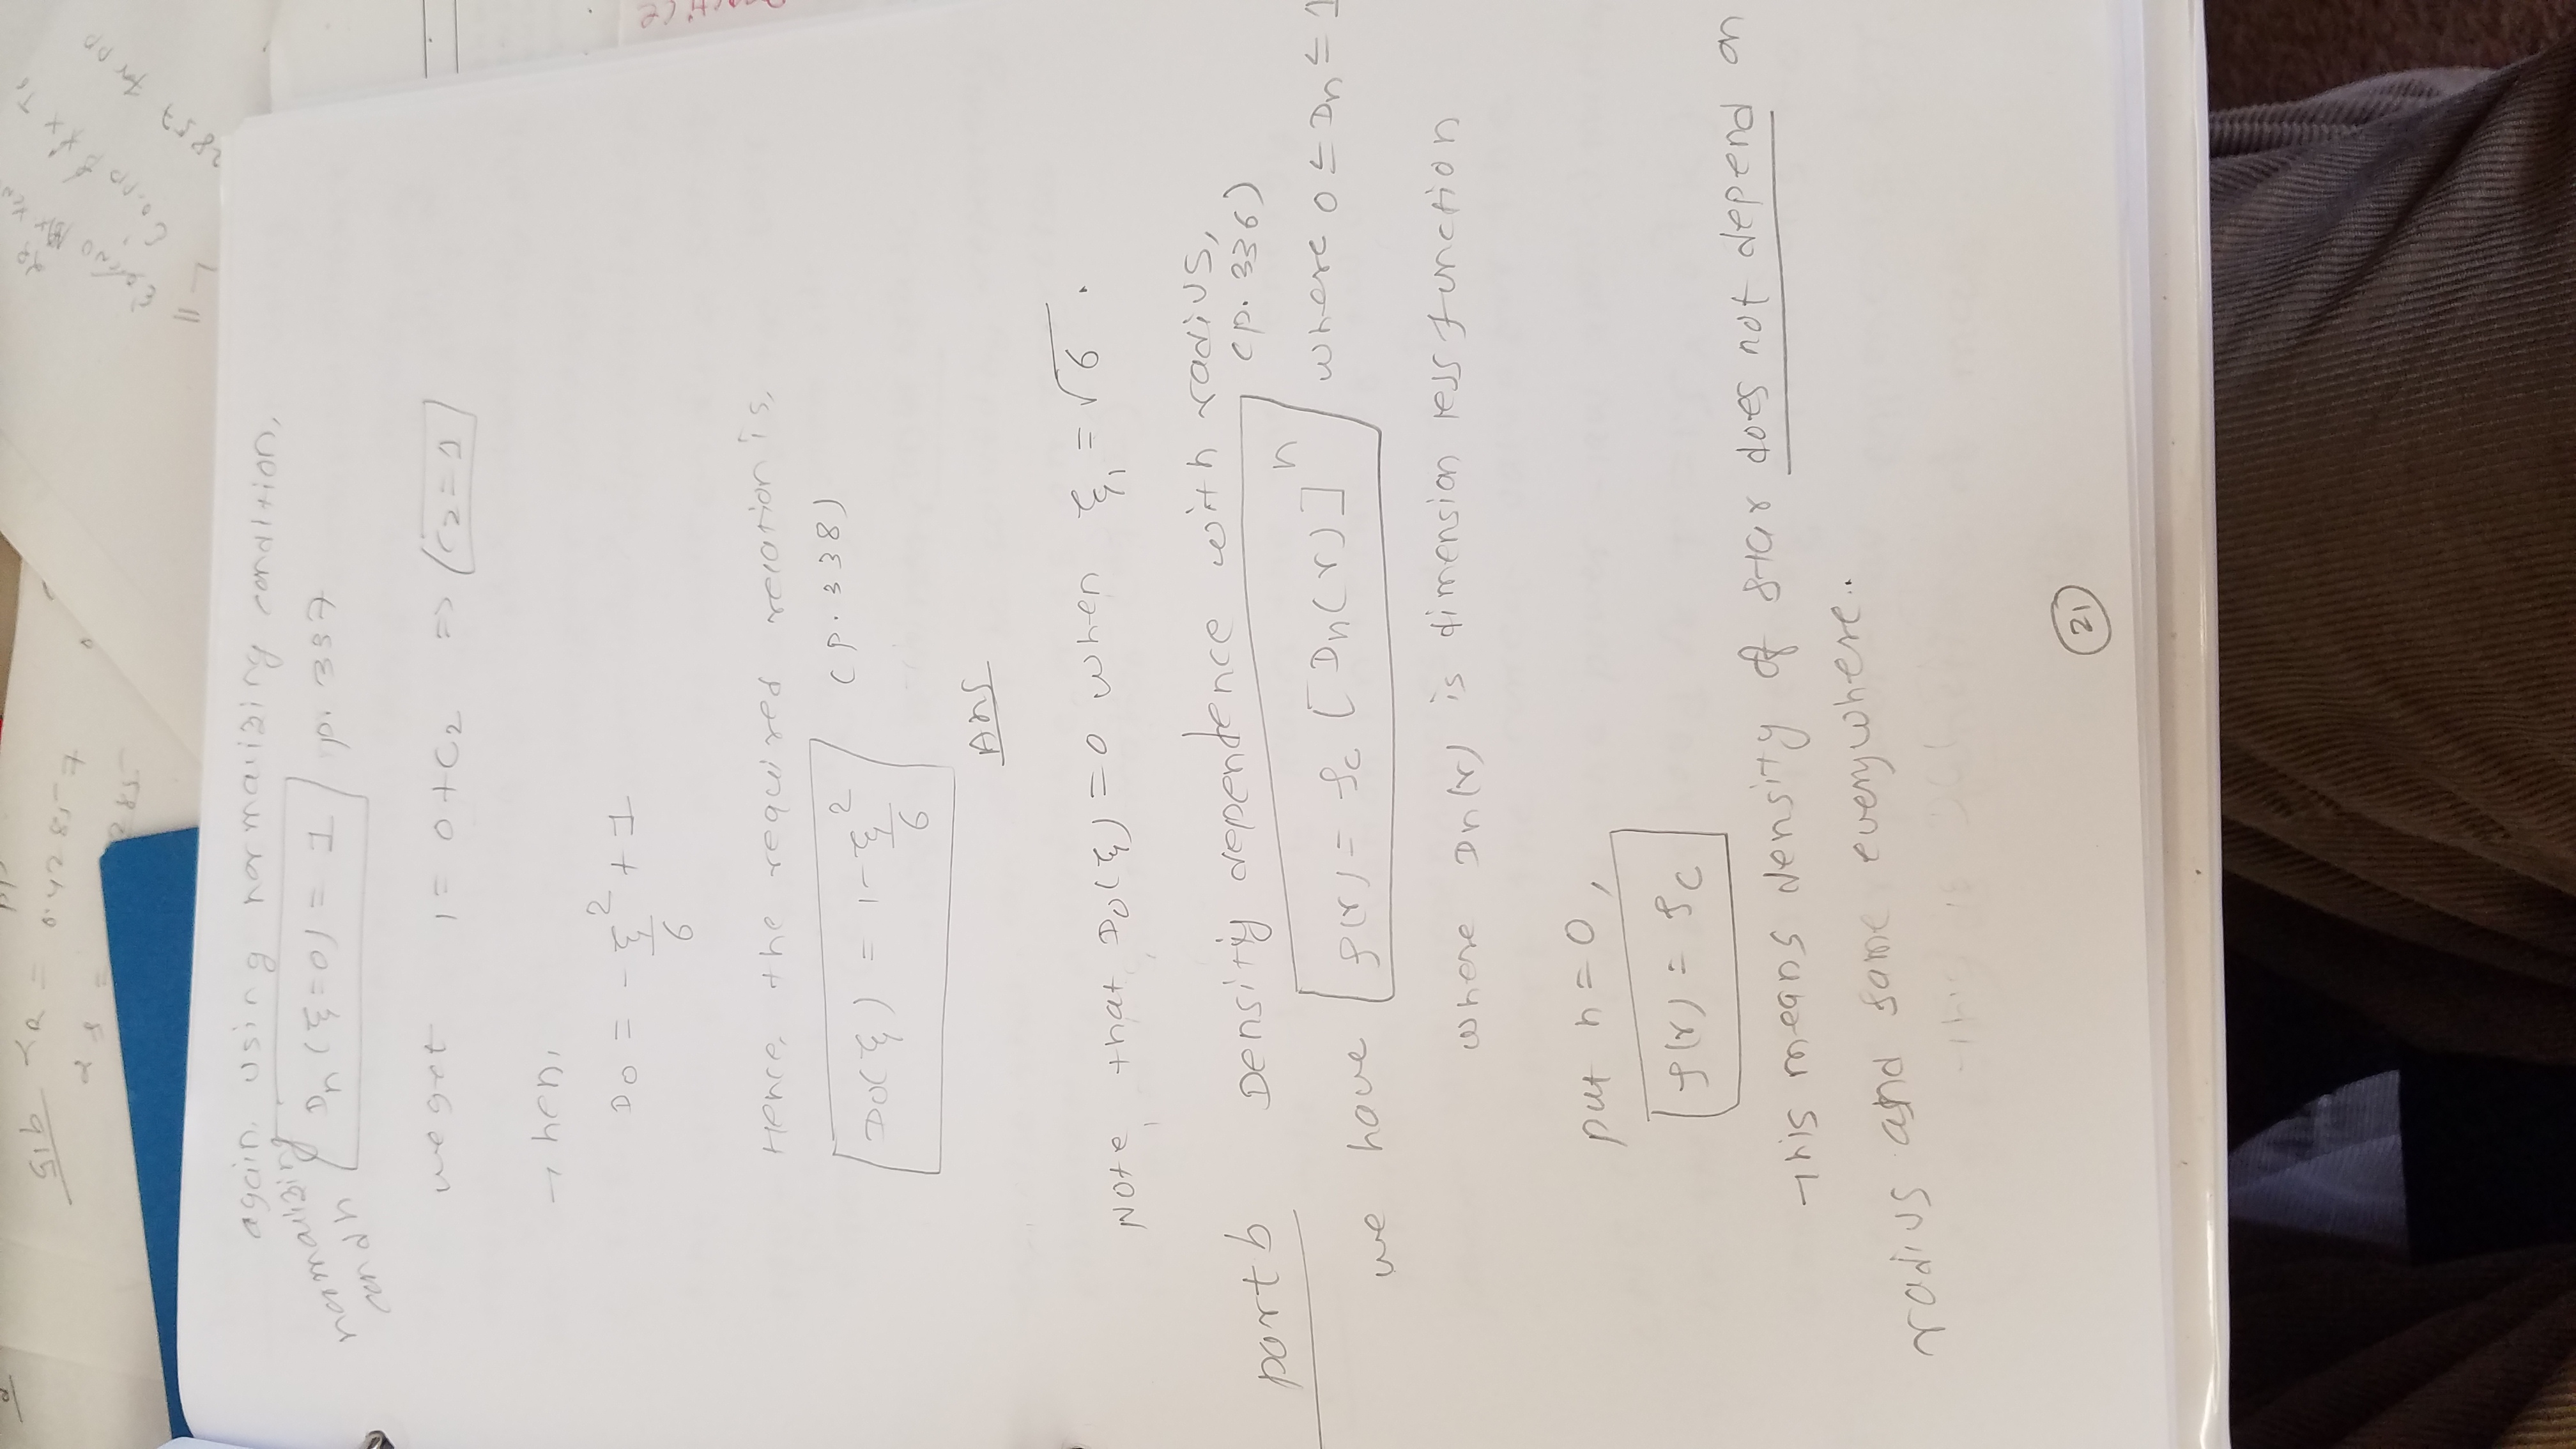 G1b α_R = 0.42857
again, using normalizing condition,
normalizing
condn
D_n (ξ=0) = 1 p. 337
we get 1 = 0 + C_2 => C_2 = 1
Then,
D_0 = -ξ^2/6 + 1
Hence, the required relation is,
D_0(ξ) = 1 - ξ^2/6 (p. 338)
Ans
Note, that D_0(ξ) = 0 when ξ_1 = √6 .
part b Density dependence with radius,
(p. 336)
we have ρ(r) = ρ_c [D_n(r)]^n where 0 ≤ D_n ≤ 1
where D_n(r) is dimension less function
put n = 0,
ρ(r) = ρ_c
This means density of star does not depend on
radius and same everywhere..
21